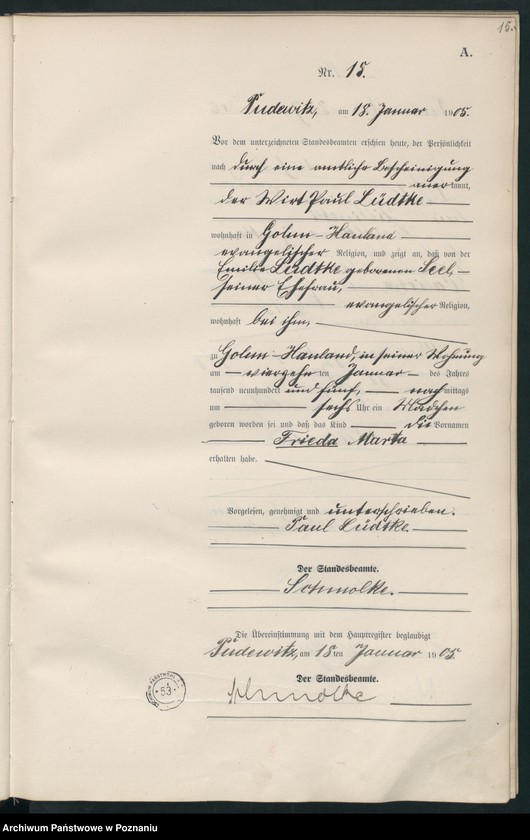 15.
A.
Nr. 15.
Pudewitz, am 18. Januar 1905.
Vor dem unterzeichneten Standesbeamten erschien heute, der Persönlichkeit
nach durch eine amtliche Bescheinigung
anerkannt,
der Wirt Paul Lüdtke
wohnhaft in Golun-Hauland
evangelischer Religion, und zeigt an, daß von der
Emilie Lüdtke geborenen Seel,
seiner Ehefrau,
evangelischer Religion,
wohnhaft bei ihm,
zu Golun-Hauland, in seiner Wohnung
am vierzehnten Januar des Jahres
tausend neunhundert und fünf, nachmittags
um sechs Uhr ein Mädchen
geboren worden sei und daß das Kind die Vornamen
Frieda Marta
erhalten habe.
Vorgelesen, genehmigt und unterschrieben.
Paul Lüdtke.
Der Standesbeamte.
Schmolke.
Die Übereinstimmung mit dem Hauptregister beglaubigt
Pudewitz, am 18ten Januar 1905.
Der Standesbeamte.
Schmolke
53
Archiwum Państwowe w Poznaniu